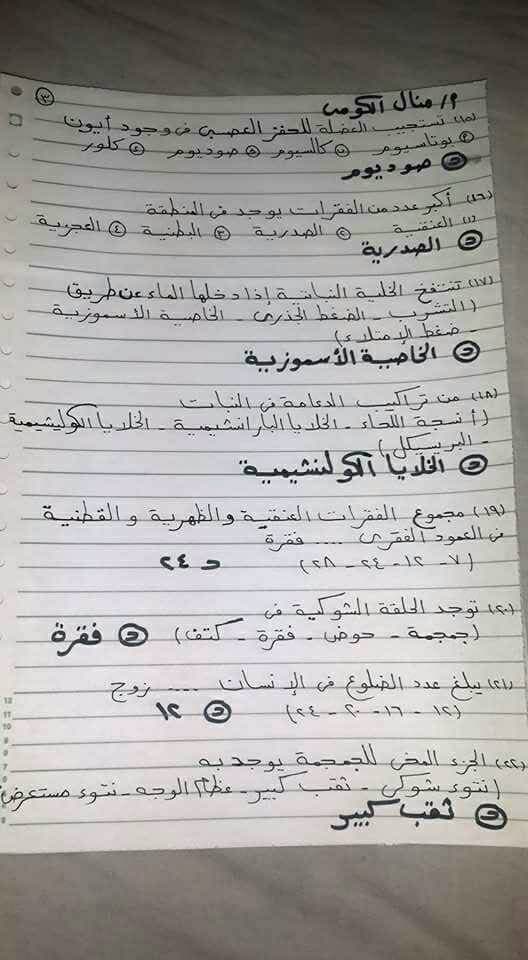 ٣
م/ منال الكومى
(١٥) تستجيب العضلة للحفز العصبى فى وجود أيون
① بوتاسيوم ② كالسيوم ③ صوديوم ④ كلور
ج صوديوم
(١٦) أكبر عدد من الفقرات يوجد فى المنطقة
① العنقية ② الصدرية ③ البطنية ④ العجزية
ج الصدرية
(١٧) تنتفخ الخلية النباتية إذا دخلها الماء عن طريق
(التشرب - الضغط الجذرى - الخاصية الأسموزية
- ضغط الإمتلاء)
ج الخاصية الأسموزية
(١٨) من تراكيب الدعامة فى النبات
(أنسجة اللحاء - الخلايا البارانشيمية - الخلايا الكولنشيمية
- البريسيكل)
ج الخلايا الكولنشيمية
(١٩) مجموع الفقرات العنقية والظهرية والقطنية
فى العمود الفقرى .... فقرة
(٧ - ١٢ - ٢٤ - ٢٨) ج ٢٤
(٢٠) توجد الحلقة الشوكية فى
(جمجمة - حوض - فقرة - كتف) ج فقرة
(٢١) يبلغ عدد الضلوع فى الإنسان .... زوج
(١٢ - ١٦ - ٢٠ - ٢٤) ج ١٢
(٢٢) الجزء المخى للجمجمة يوجد به
(نتوء شوكى - ثقب كبير - عظام الوجه - نتوء مستعرض
ج ثقب كبير